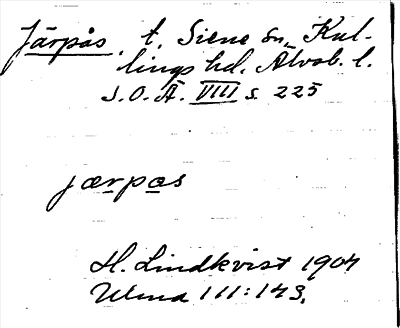 Järpås, t. Siene sn, Kul-
lings hd. Älvsb. l.
S. O. Ä. VIII s. 225
jærpas
H. Lindkvist 1904
Ulma 111:143.